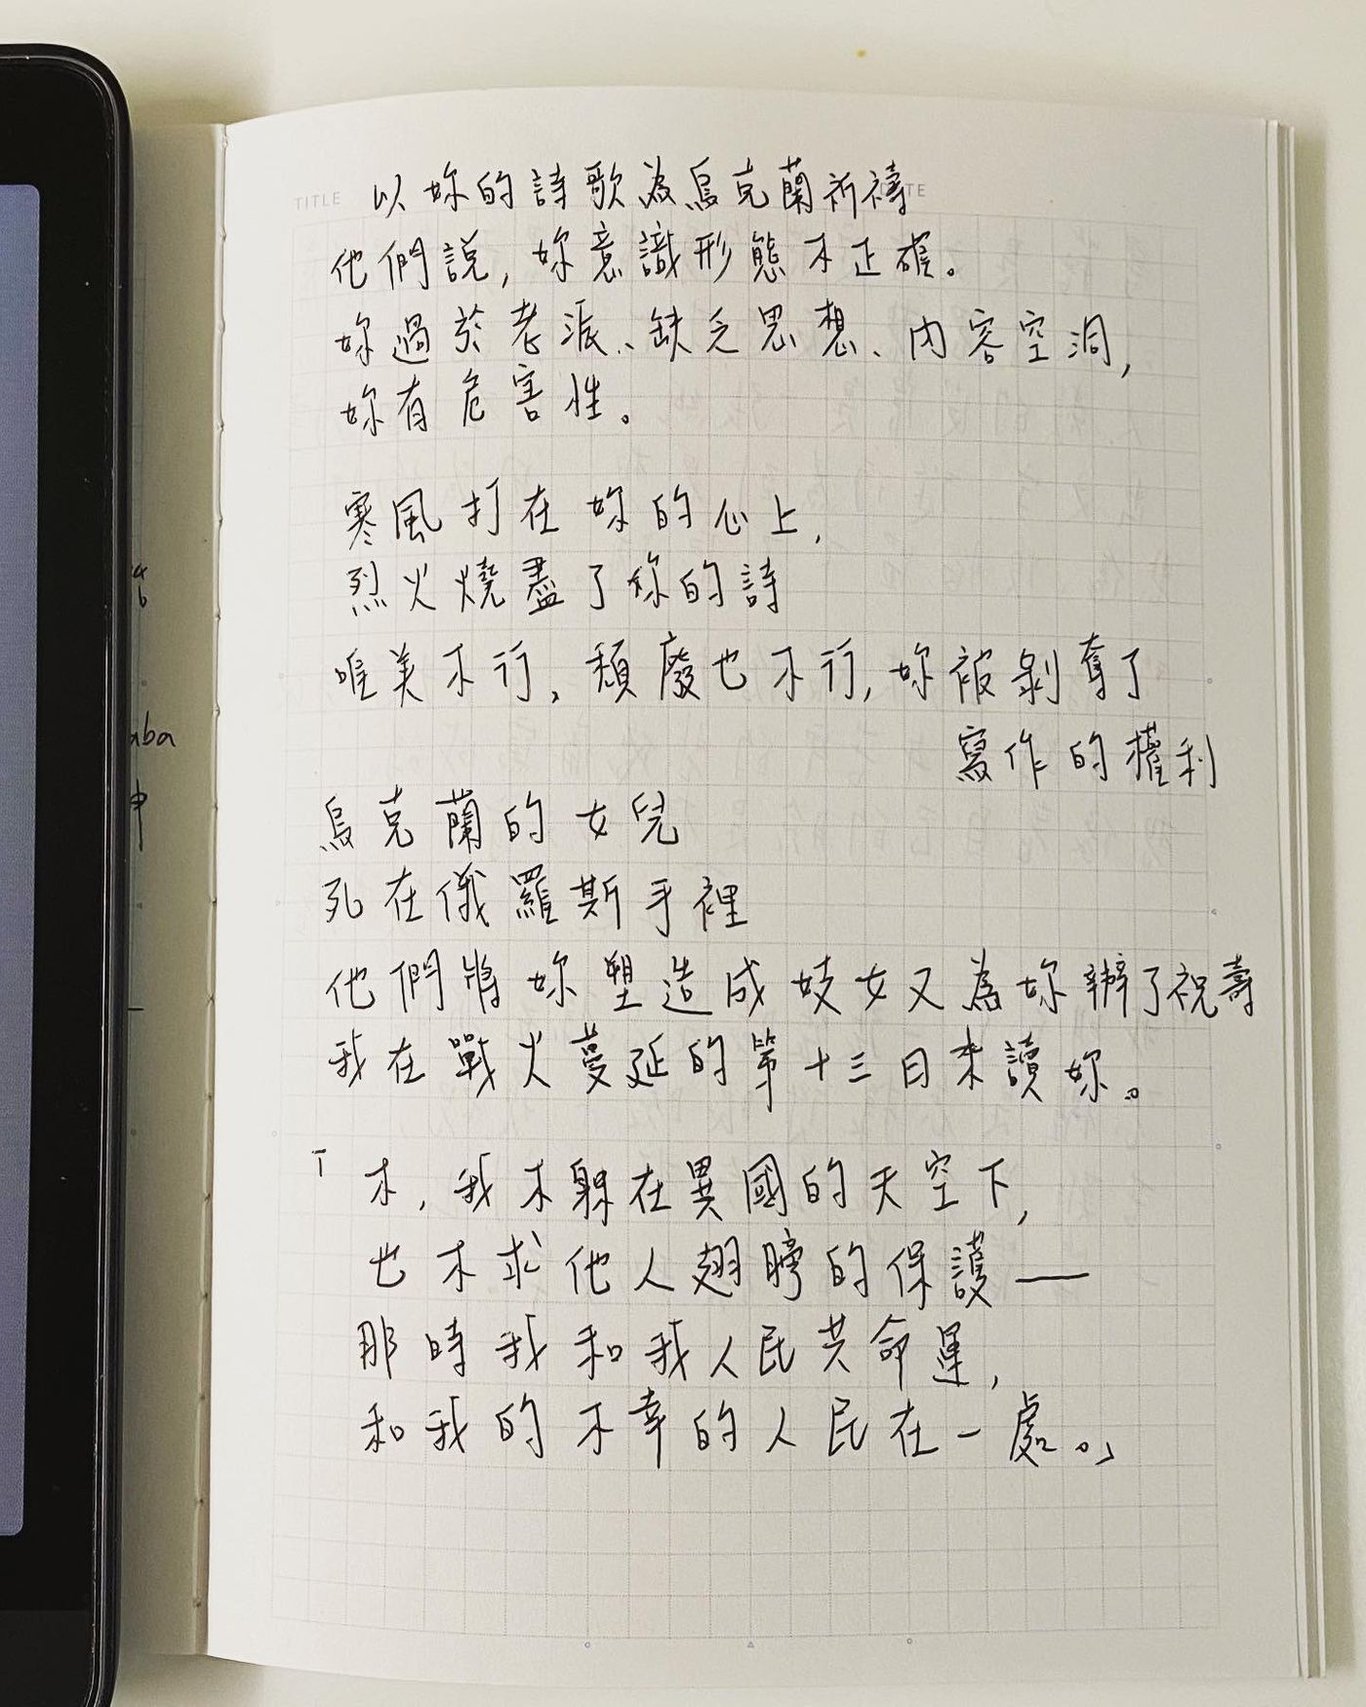 TITLE 以妳的詩歌為烏克蘭祈禱
他們說,妳意識形態不正確。
妳過於老派、缺乏思想、內容空洞,
妳有危害性。
寒風打在妳的心上,
烈火燒盡了妳的詩
唯美不行,頹廢也不行,妳被剝奪了
寫作的權利
烏克蘭的女兒
死在俄羅斯手裡
他們將妳塑造成妓女又為妳辦了祝壽
我在戰火蔓延的第十三日來讀妳。
「不,我不躲在異國的天空下,
也不求他人翅膀的保護——
那時我和我人民共命運,
和我的不幸的人民在一處。」
aba